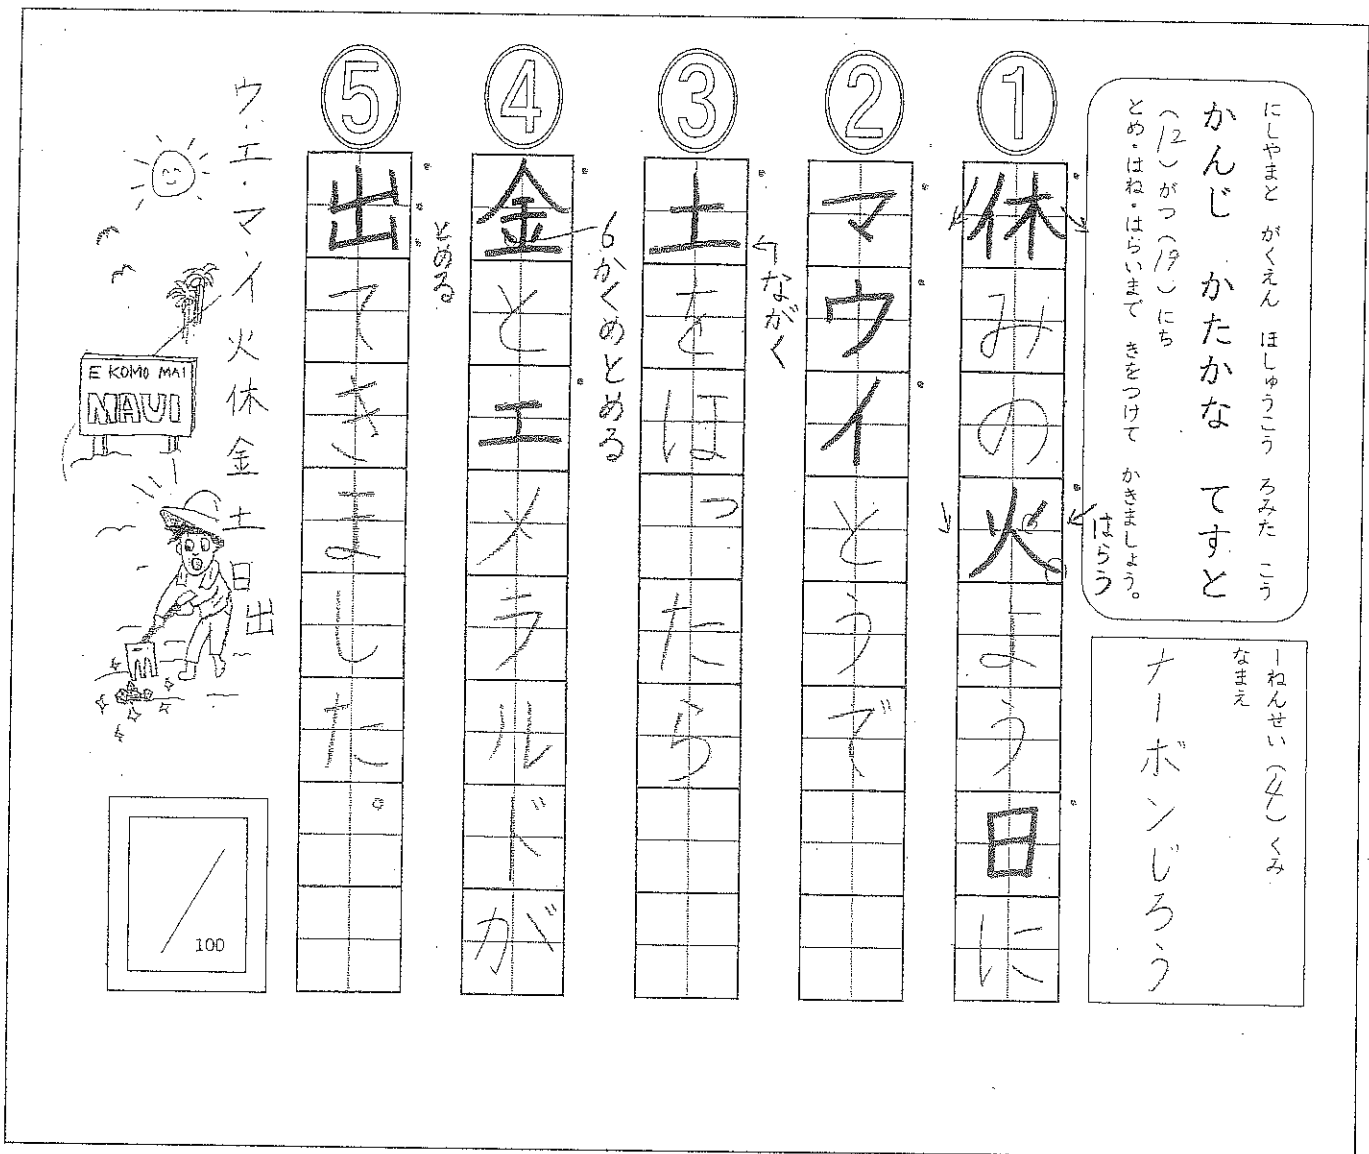 にしやまと がくえん ほしゅうこう ろみた こう
かんじ かたかな てすと
(12)がつ(19)にち
とめ・はね・はらいまで きをつけて かきましょう。
一ねんせい(4)くみ
なまえ
ナーボンじろう
①休みの火よう日に
はらう
②マウイとうで
③土をほったら
ながく
④金とエメラルドが
6かくめとめる
⑤出てきました。
とめる
ウ・エ・マ・イ 火休金土日出
E KOMO MAI
MAUI
M
100